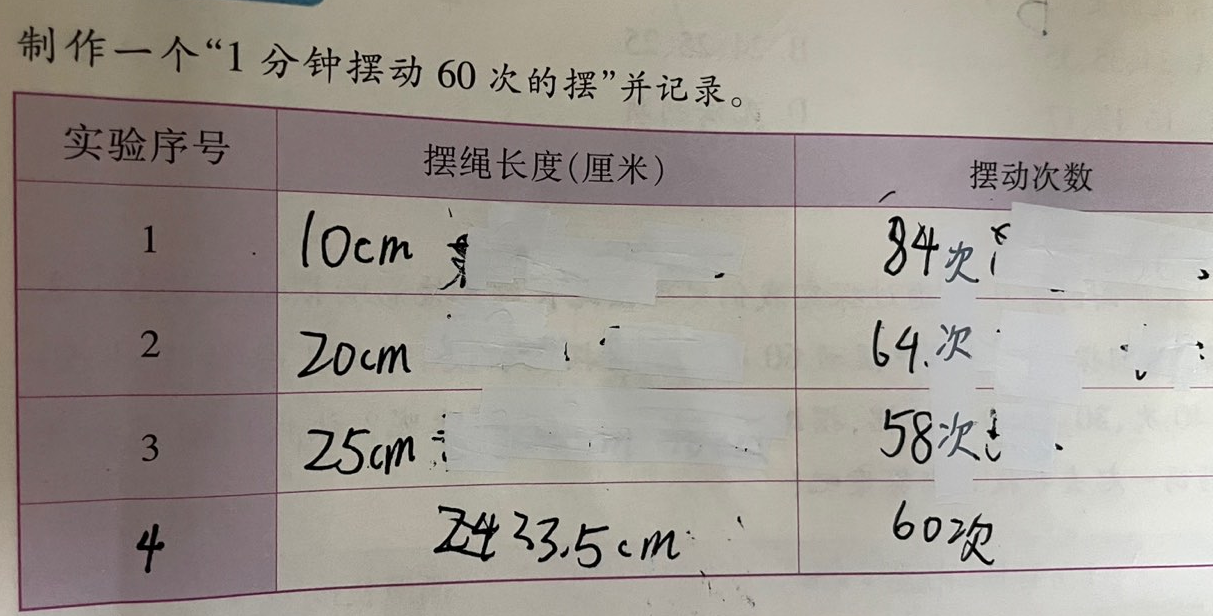 制作一个“1分钟摆动60次的摆”并记录。
实验序号 摆绳长度(厘米) 摆动次数
1 10cm 84次
2 20cm 64.次
3 25cm 58次
4 23.5cm 60次